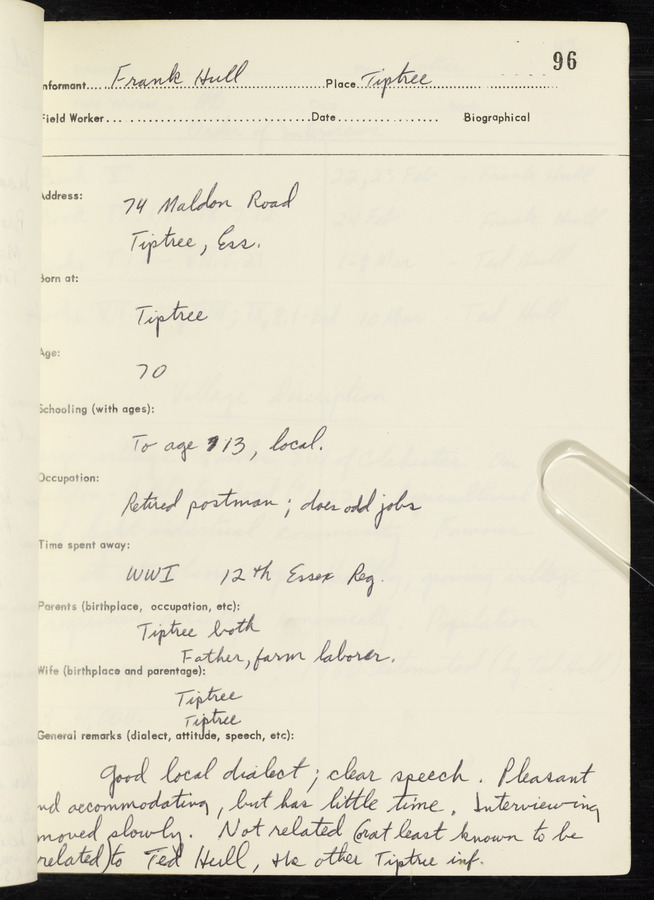 96
nformant.... Frank Hull Place. Tiptree
Field Worker... Date Biographical
Address:
74 Maldon Road
Tiptree, Ess.
Born at:
Tiptree
Age:
70
Schooling (with ages):
To age 13, local.
Occupation:
Retired postman; does odd jobs
Time spent away:
WWI 12th Essex Reg.
Parents (birthplace, occupation, etc):
Tiptree both
Father, farm laborer.
Wife (birthplace and parentage):
Tiptree
Tiptree
General remarks (dialect, attitude, speech, etc):
Good local dialect; clear speech. Pleasant
nd accommodating, but has little time. Interviewing
moved slowly. Not related (nat least known to be
related) to Ted Hull, the other Tiptree inf.